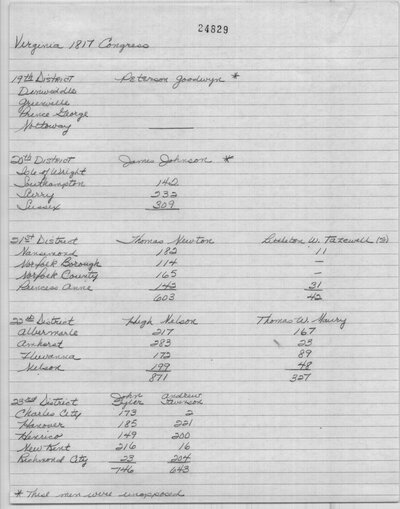 24829
Virginia 1817 Congress
19th District Peterson Goodwyn *
Dinwiddie
Greensville
Prince George
Nottoway
20th District James Johnson *
Isle of Wright
Southampton 142
Surry 232
Sussex 309
21st District Thomas Newton Littleton W. Tazewell (S)
Nansemond 182 11
Norfolk Borough 114 -
Norfolk County 165 -
Princess Anne 142 31
603 42
22nd District Hugh Nelson Thomas W. Maury
Albermarle 217 167
Amherst 283 23
Fluvanna 172 89
Nelson 199 48
871 327
23rd District John Tyler Andrew Stevenson
Charles City 173 2
Hanover 185 221
Henrico 149 200
New Kent 216 16
Richmond City 23 204
746 643
* These men were unopposed